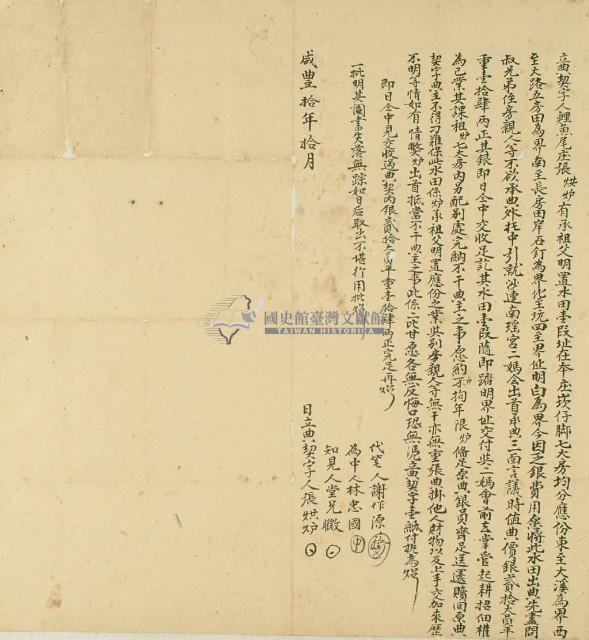 立典契字人鯉魚尾庄張烘炉有承祖父明置水田壹段址在本庄崁仔脚七大房均分應份東至大溪為界西
至大路五房田為界南至長房田岸石釘為界北至坑四至界址明白為界今因乏銀費用愿將此水田出典先盡問
叔兄弟侄房親人等不欲承典外托中引就沙連南瑶宮二媽会出首承典三面言議時值典價銀貳拾大員年
重壹拾肆両正其銀即日仝中交收足訖其水田壹段隨即踏明界址交付與二媽會前去掌管起耕招佃權
為己業其課祖炉七大房內另配別處完納不干典主之事愿約不拘年限炉俻足原典銀員齊足送還贖回原典
契字典主不得刁难保此水田係炉承祖父明置應份之業與別房親人等無干亦無重張典掛他人財物以及上手交加來歷
不明等情如有情弊炉出首抵當不干典主之事此係二比甘愿各無反悔口恐無凴立典契字壹紙付执為炤
即日仝中見交收過典契內銀貳拾大員年重壹拾肆両正完足再炤
一批明其鬮書失落無踪如日后取出不堪行用批炤
代笔人謝作源
為中人林忠國
知見人堂兄
咸豐拾年拾月 日立典契字人張烘炉
國史館臺灣文獻館
TAIWAN HISTORICA